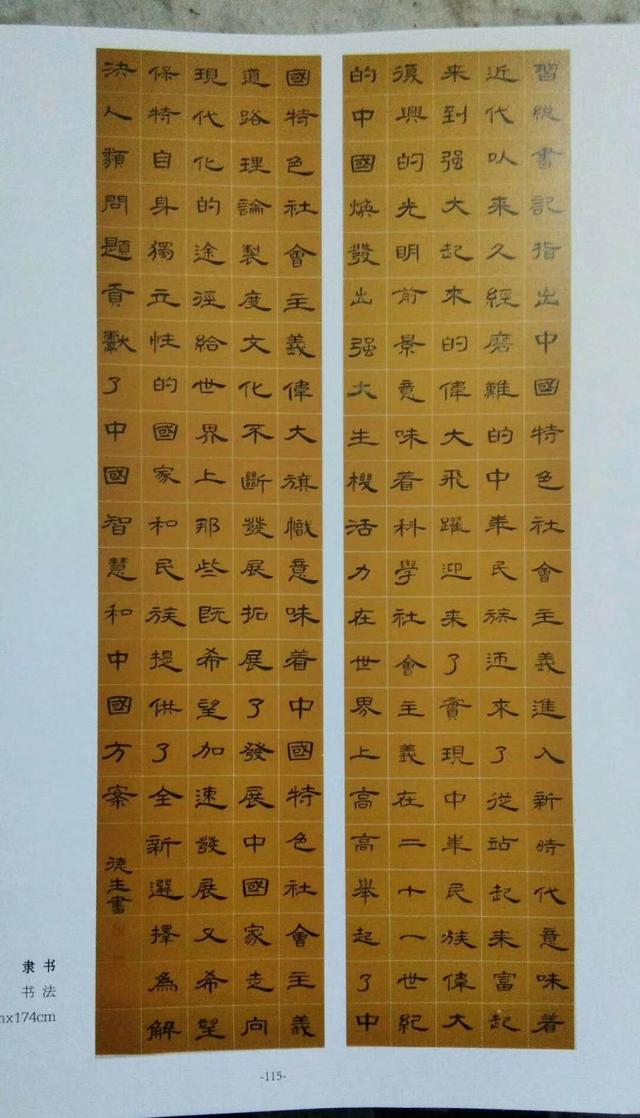 習總書記指出中國特色社會主義進入新時代意味着
近代以来久經磨難的中華民族迊來了從站起来富起
来到强大起来的偉大飛躍迎来了實現中華民族偉大
復興的光明前景意味着科學社會主義在二十一世紀
的中國焕發出强大生機活力在世界上高高舉起了中
國特色社會主義偉大旗幟意味着中國特色社會主義
道路理論製度文化不斷發展拓展了發展中國家走向
現代化的途徑給世界上那些既希望加速發展又希望
保特自身獨立性的國家和民族提供了全新選擇為解
决人類問題貢獻了中國智慧和中國方案
德生書
隶书
书法
x174cm
-115-